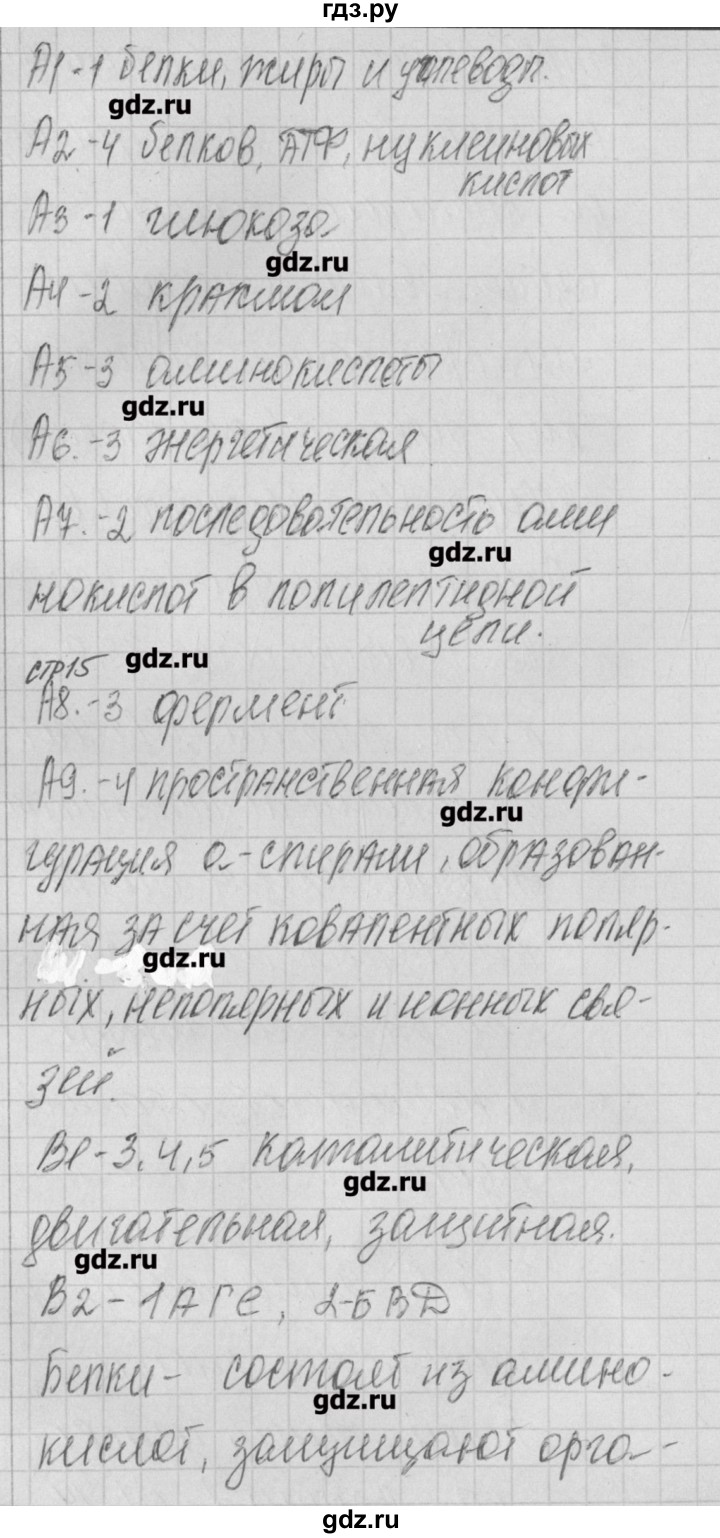 гдз.ру
А1-1 белки, жиры и углеводы.
gdz.ru
А2-4 белков, АТФ, нуклеиновых
кислот
А3-1 глюкоза
gdz.ru
А4-2 крахмал
А5-3 аминокислоты
gdz.ru
А6.-3 энергетическая
А7.-2 последовательность ами
gdz.ru
нокислот в полипептидной
цепи.
стр15 gdz.ru
А8.-3 фермент
А9.-4 пространственная конфи-
gdz.ru
гурация а-спирали, образован-
ная за счет ковалентных поляр-
gdz.ru
ных, неполярных и ионных свя-
зей.
В1-3,4,5 каталитическая,
gdz.ru
двигательная, защитная.
gdz.ru
В2-1АГЕ, 2-БВД
Белки- состоят из амино-
gdz.ru
кислот, защищают орга-
gdz.ru